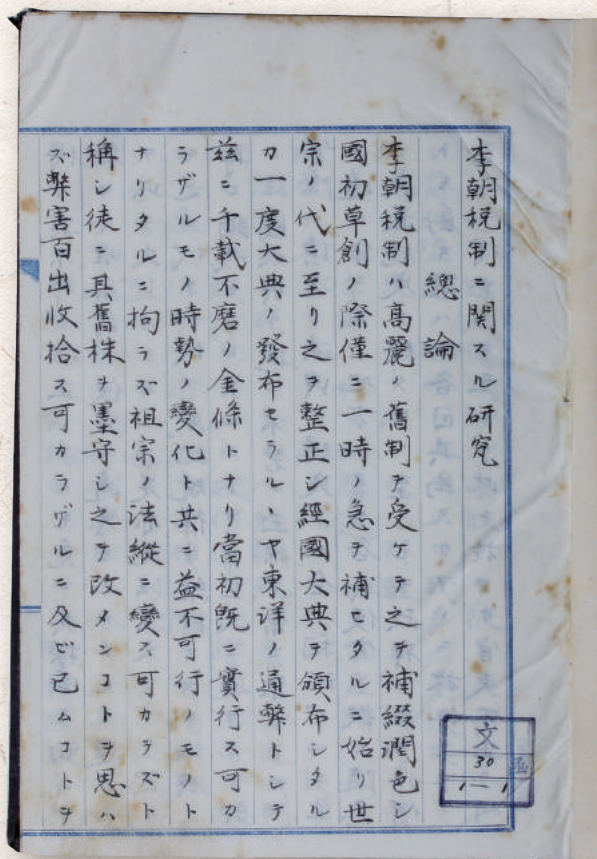 李朝税制ニ関スル研究
總論
李朝税制ハ高麗ノ舊制ヲ受ケテ之ヲ補綴潤色シ
國初草創ノ際僅ニ一時ノ急ヲ補ヒタルニ始リ世
宗ノ代ニ至リ之ヲ整正シ經國大典ヲ頒布シタル
カ一度大典ノ發布セラルヽヤ東洋ノ通弊トシテ
兹ニ千載不磨ノ金條トナリ當初旣ニ實行ス可カ
ラザルモノ時勢ノ變化ト共ニ益不可行ノモノト
ナリタルニ拘ラズ祖宗ノ法縱ニ變ス可カラズト
稱シ徒ニ其舊株ヲ墨守シ之ヲ改メンコトヲ思ハ
ズ弊害百出收拾ス可カラザルニ及ビ已ムコトヲ
文
30
函
1-1